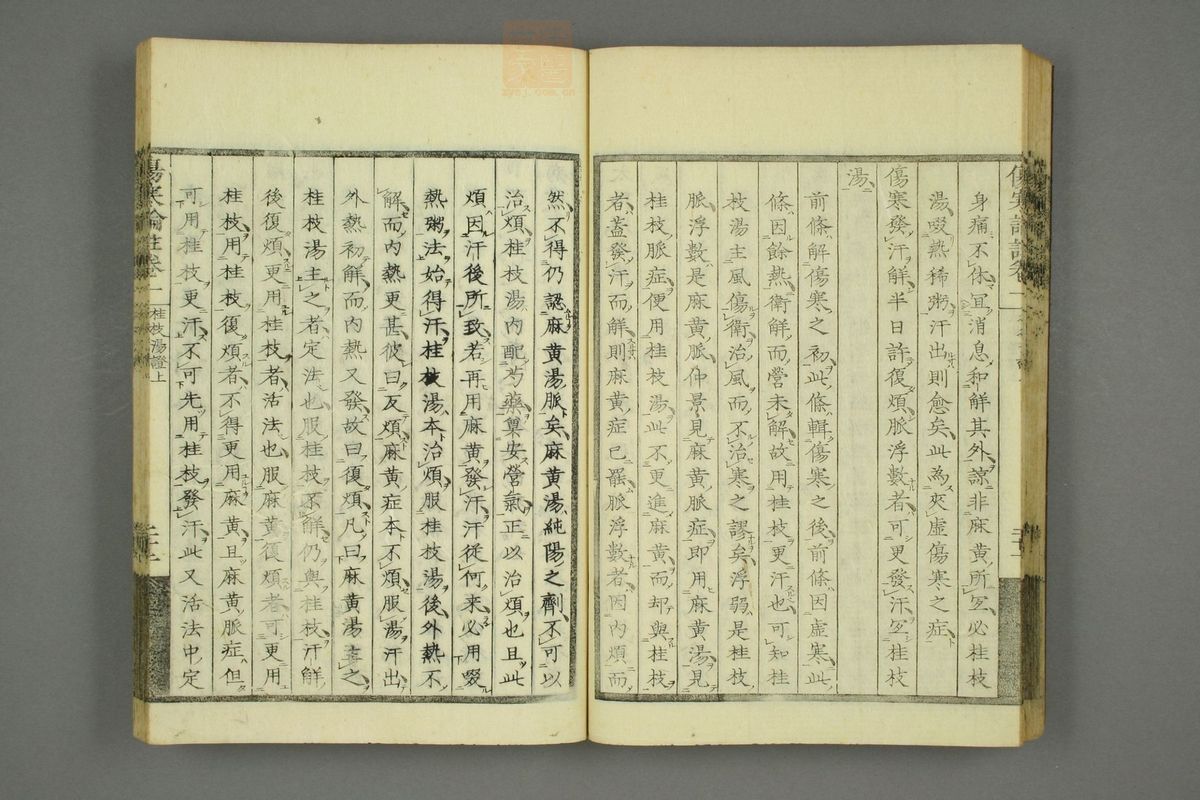 身痛不休宜消息和解其外諒非麻黃所宜必桂枝
湯啜熱稀粥汗出則愈矣此為夾虛傷寒之症
傷寒發汗解半日許復煩脈浮數者可更發汗宜桂枝
湯
前條解傷寒之初此條輯傷寒之後前條因虛寒此
條因餘熱衛解而營未解故用桂枝更汗也可知桂
枝湯主風傷衛治風而不治寒之謬矣浮弱是桂枝
脈浮數是麻黃脈仲景見麻黃脈症即用麻黃湯見
桂枝脈症便用桂枝湯此不更進麻黃而却與桂枝
者蓋發汗而解則麻黃症已罷脈浮數者因內煩而
然不得仍認麻黃湯脈矣麻黃湯純陽之劑不可以
治煩桂枝湯內配芍藥奠安營氣正以治煩也且此
煩因汗後所致若再用麻黃發汗汗從何來必用啜
熱粥法始得汗桂枝湯本治煩服桂枝湯後外熱不
解而內熱更甚彼曰反煩麻黃症本不煩服湯汗出
外熱初解而內熱又發故曰復煩凡曰麻黃湯主之
桂枝湯主之者定法也服桂枝不解仍與桂枝汗解
後復煩更用桂枝者活法也服麻黃復煩者可更用
桂枝用桂枝復煩者不得更用麻黃且麻黃脈症但
可用桂枝更汗不可先用桂枝發汗此又活法中定
傷寒論註卷一
桂枝湯證上
二十二